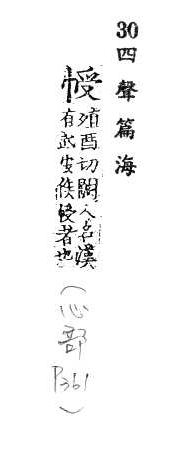 30四聲篇海
㥅
殖酉切闕人名漢
有武安侯㥅者也
(心部 P361)